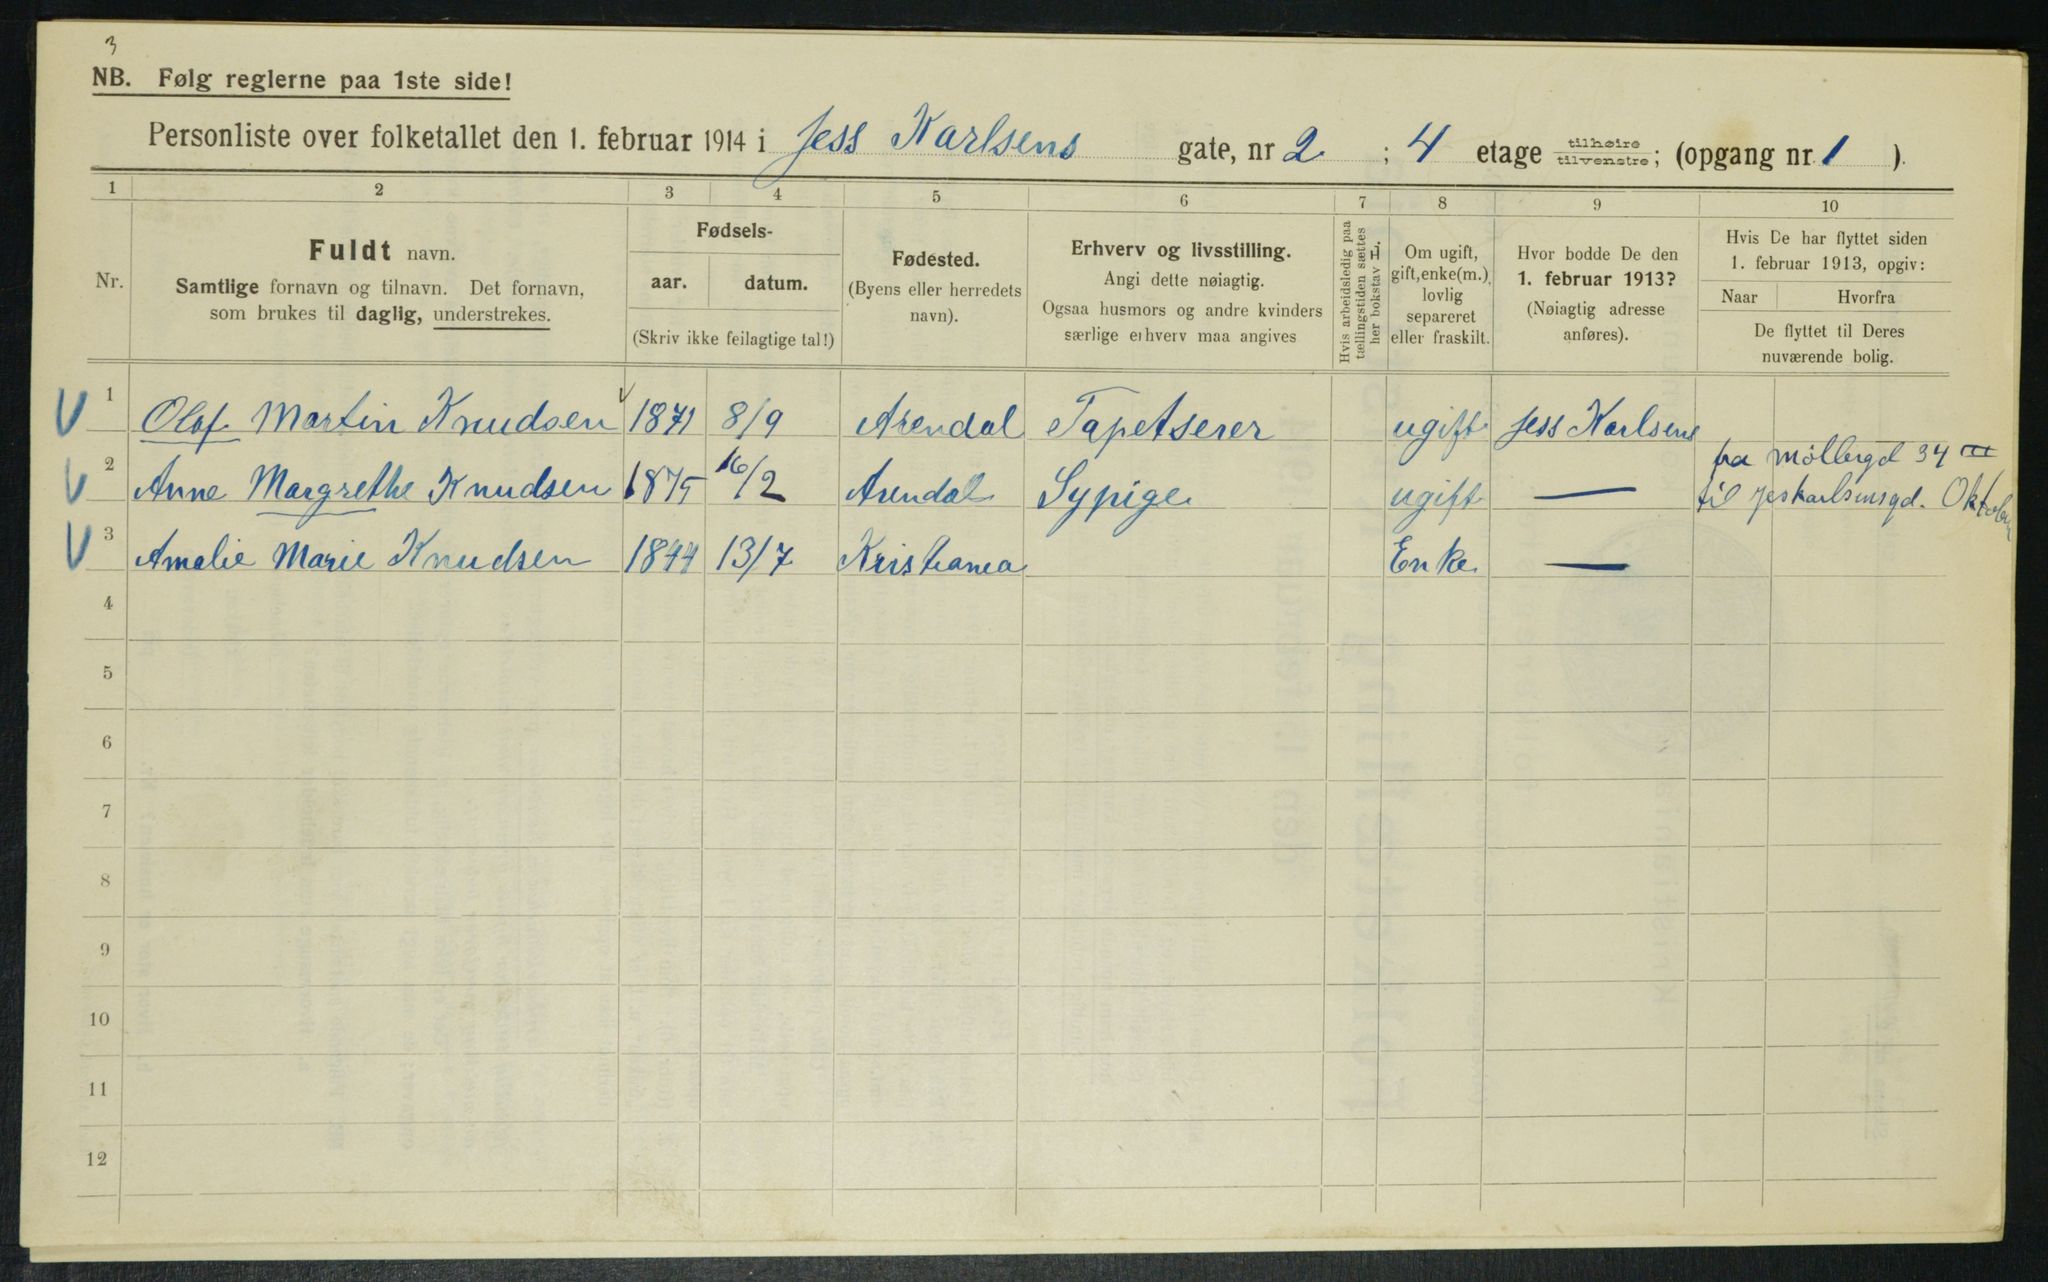 3
NB. Følg reglerne paa 1ste side!
Personliste over folketallet den 1. februar 1914 i Jess Karlsens gate, nr 2 ; 4 etage tilhøire tilvenstre; (opgang nr. 1 ).
1 2 3 4 5 6 7 8 9 10
Nr.
Fuldt navn.
Samtlige fornavn og tilnavn. Det fornavn,
som brukes til daglig, understrekes.
Fødsels-
aar. datum.
(Skriv ikke feilagtige tal!)
Fødested.
(Byens eller herredets
navn).
Erhverv og livsstilling.
Angi dette nøiagtig.
Ogsaa husmors og andre kvinders
særlige erhverv maa angives
Hvis arbeidsledig paa
tællingstiden sættes
her bokstav L.
Om ugift,
gift, enke(m.),
lovlig
separeret
eller fraskilt.
Hvor bodde De den
1. februar 1913?
(Nøiagtig adresse
anføres).
Hvis De har flyttet siden
1. februar 1913, opgiv:
Naar Hvorfra
De flyttet til Deres
nuværende bolig.
1 Olaf Martin Knudsen 1871 8/9 Arendal Tapetserer ugift Jess Karlsens
2 Anne Margrethe Knudsen 1875 16/2 Arendal Sypige ugift —
fra Møllergd 34 III
til Jeskarlsensgd. Oktober
3 Amalie Marie Knudsen 1844 13/7 Kristiania Enke —
4
5
6
7
8
9
10
11
12